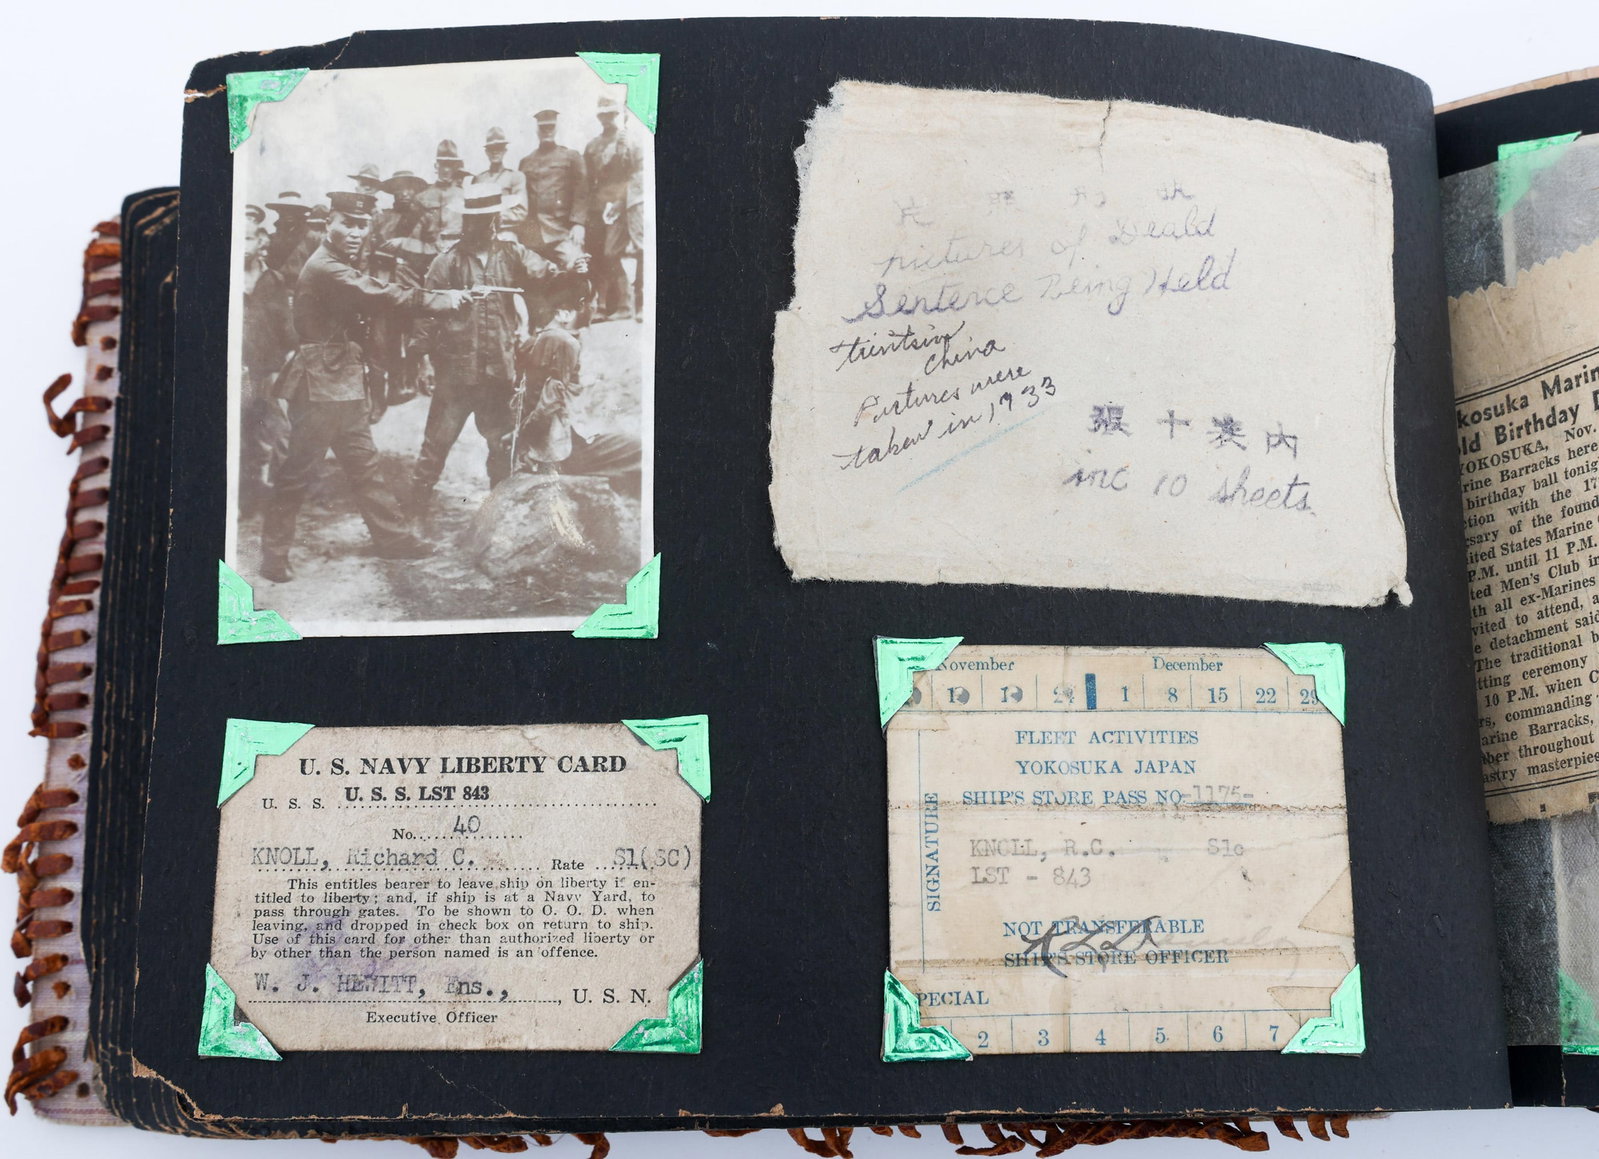 pictures of Deald
Sentence Being Held
trintsin
China
Pictures were
taken in 1933
張十裝內
inc 10 sheets
U. S. NAVY LIBERTY CARD
U. S. S. U. S. S. LST 843
No. 40
KNOLL, Richard C. Rate S1(SC)
This entitles bearer to leave ship on liberty if en-
titled to liberty; and, if ship is at a Navy Yard, to
pass through gates. To be shown to O. O. D. when
leaving, and dropped in check box on return to ship.
Use of this card for other than authorized liberty or
by other than the person named is an offence.
W. J. HEWITT, Ens., U. S. N.
Executive Officer
November December
1 8 15 22 29
FLEET ACTIVITIES
YOKOSUKA JAPAN
SHIP'S STORE PASS NO -1175-
SIGNATURE
KNOLL, R.C. S1c
LST - 843
NOT TRANSFERABLE
SHIP'S STORE OFFICER
PECIAL
2 3 4 5 6 7
kosuka Marin
ld Birthday
YOKOSUKA, Nov.
rine Barracks here
birthday ball tonig
ction with the 17
sary of the found
ited States Marine
P.M. until 11 P.M.
ted Men's Club in
th all ex-Marines
vited to attend, a
e detachment said
The traditional b
tting ceremony
10 P.M. when C
rs, commanding
arine Barracks,
ber throughout
astry masterpiec